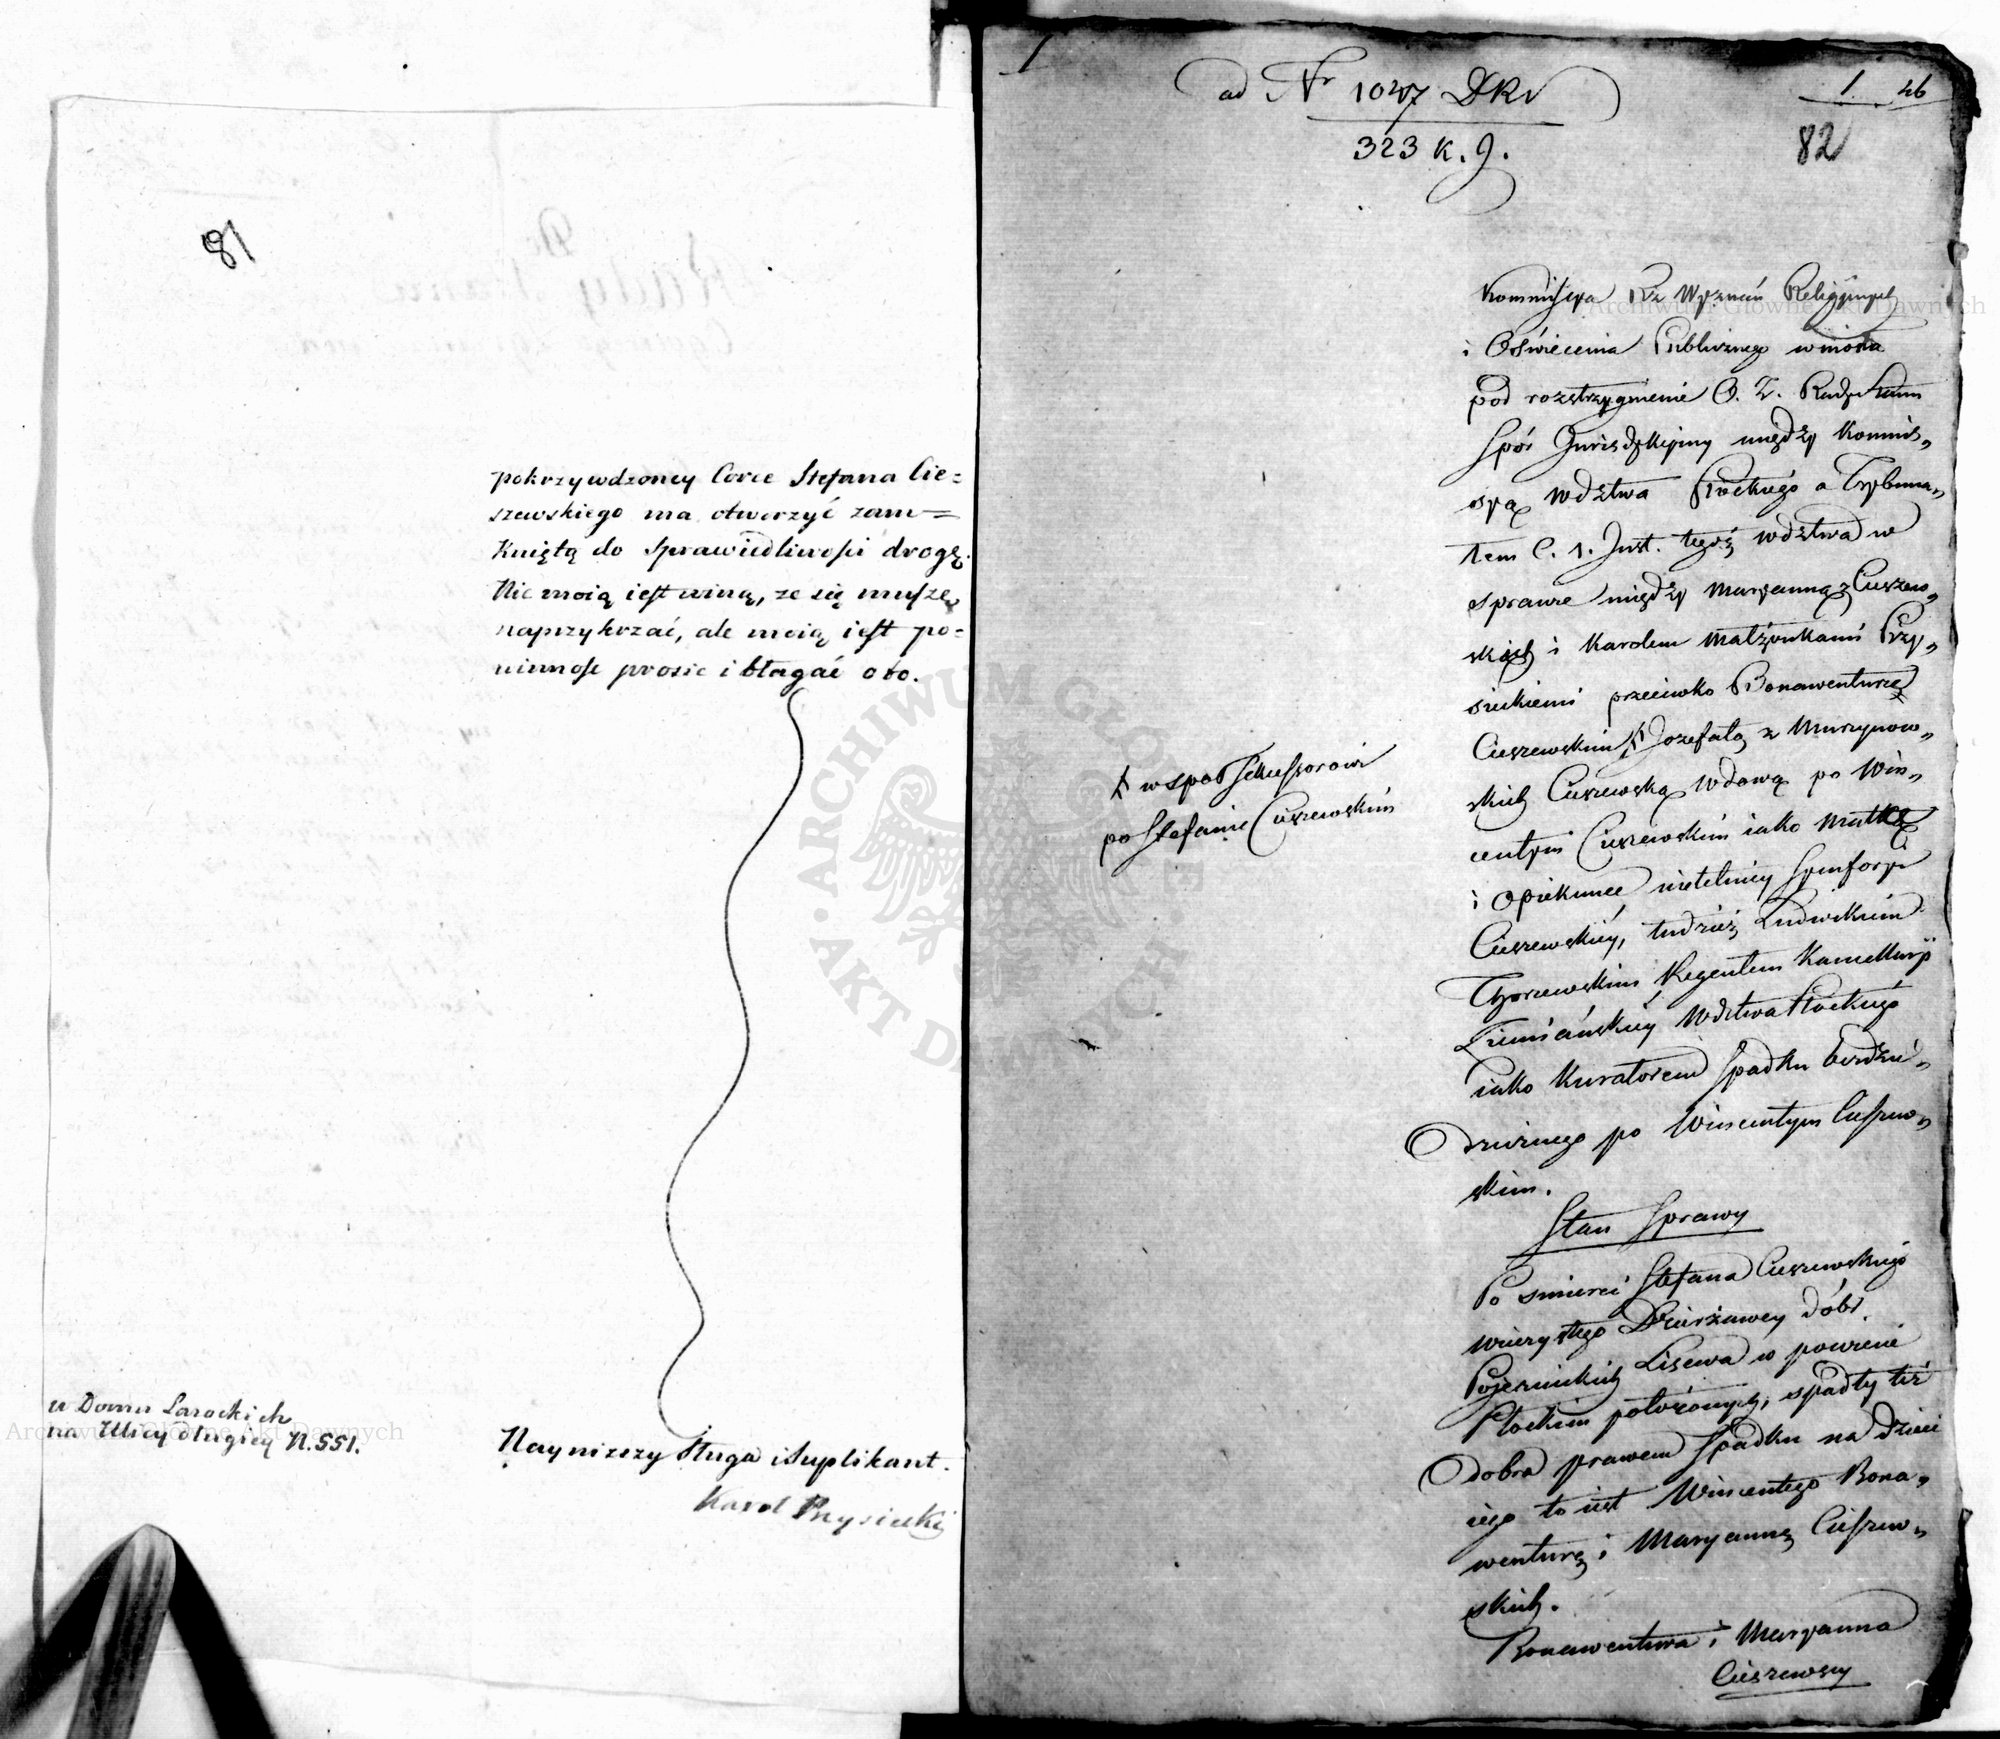 81
pokrzywdzoney Corce Stefana Cie=
szewskiego ma otworzyć zam=
Kniętą do Sprawiedliwości drogę.
Nie moią iest winą, ze się muszę
naprzykrzać, ale moią iest po=
winność prosić i błagać oto.
w Domu Sarockich
na Ulicy długiey N. 551.
Nayniższy Sługa i Suplikant.
Karol Przysiecki
1
ad Nr 1047 DKV
323 K. J.
1 46
82
Kommissya Rz Wyznań Religijnych
i Oświecenia Publicznego wniosła
pod rozstrzygnienie O. Z. Rady Stanu
Spór Jurisdykcyiny między Kommis„
syą Wdztwa Płockiego a Trybuna„
łem C. 1. Inst. tegoż wdztwa w
sprawie między Maryanną z Cieszew„
skich i Karolem małżonkami Przy„
sieckiemi przeciwko Bonawenturze
Cieszewskim Ⱶ Jozefatą z Murzynow„
skich Cieszewską wdową po Win„
centym Cieszewskim iako matkę
i Opiekunce nieletniey Symforyi
Cieszewskiey, tudzież Ludwikiem
Regentem Kancellaryi
Ziemiańskiey Wdztwa Płockiego
iako Kuratorem Spadku bezdzie„
dzicznego po Wincentym Cieszew„
skim.
Ⱶ wspoł Sukcessorowi
po Stefanie Cieszewskim
Stan Sprawy
Po smierci Stefana Cieszewskiego
wieczystego Dzierżawcy dóbr
Pojezuickich Lisewa w powiecie
Płockim położonych, spadły też
dobra prawem Spadku na dzieci
iego to iest Wincentego Bona„
wenturę i Maryannę Cieszew„
skich.
Bonawentura i Maryanna
Cieszewscy